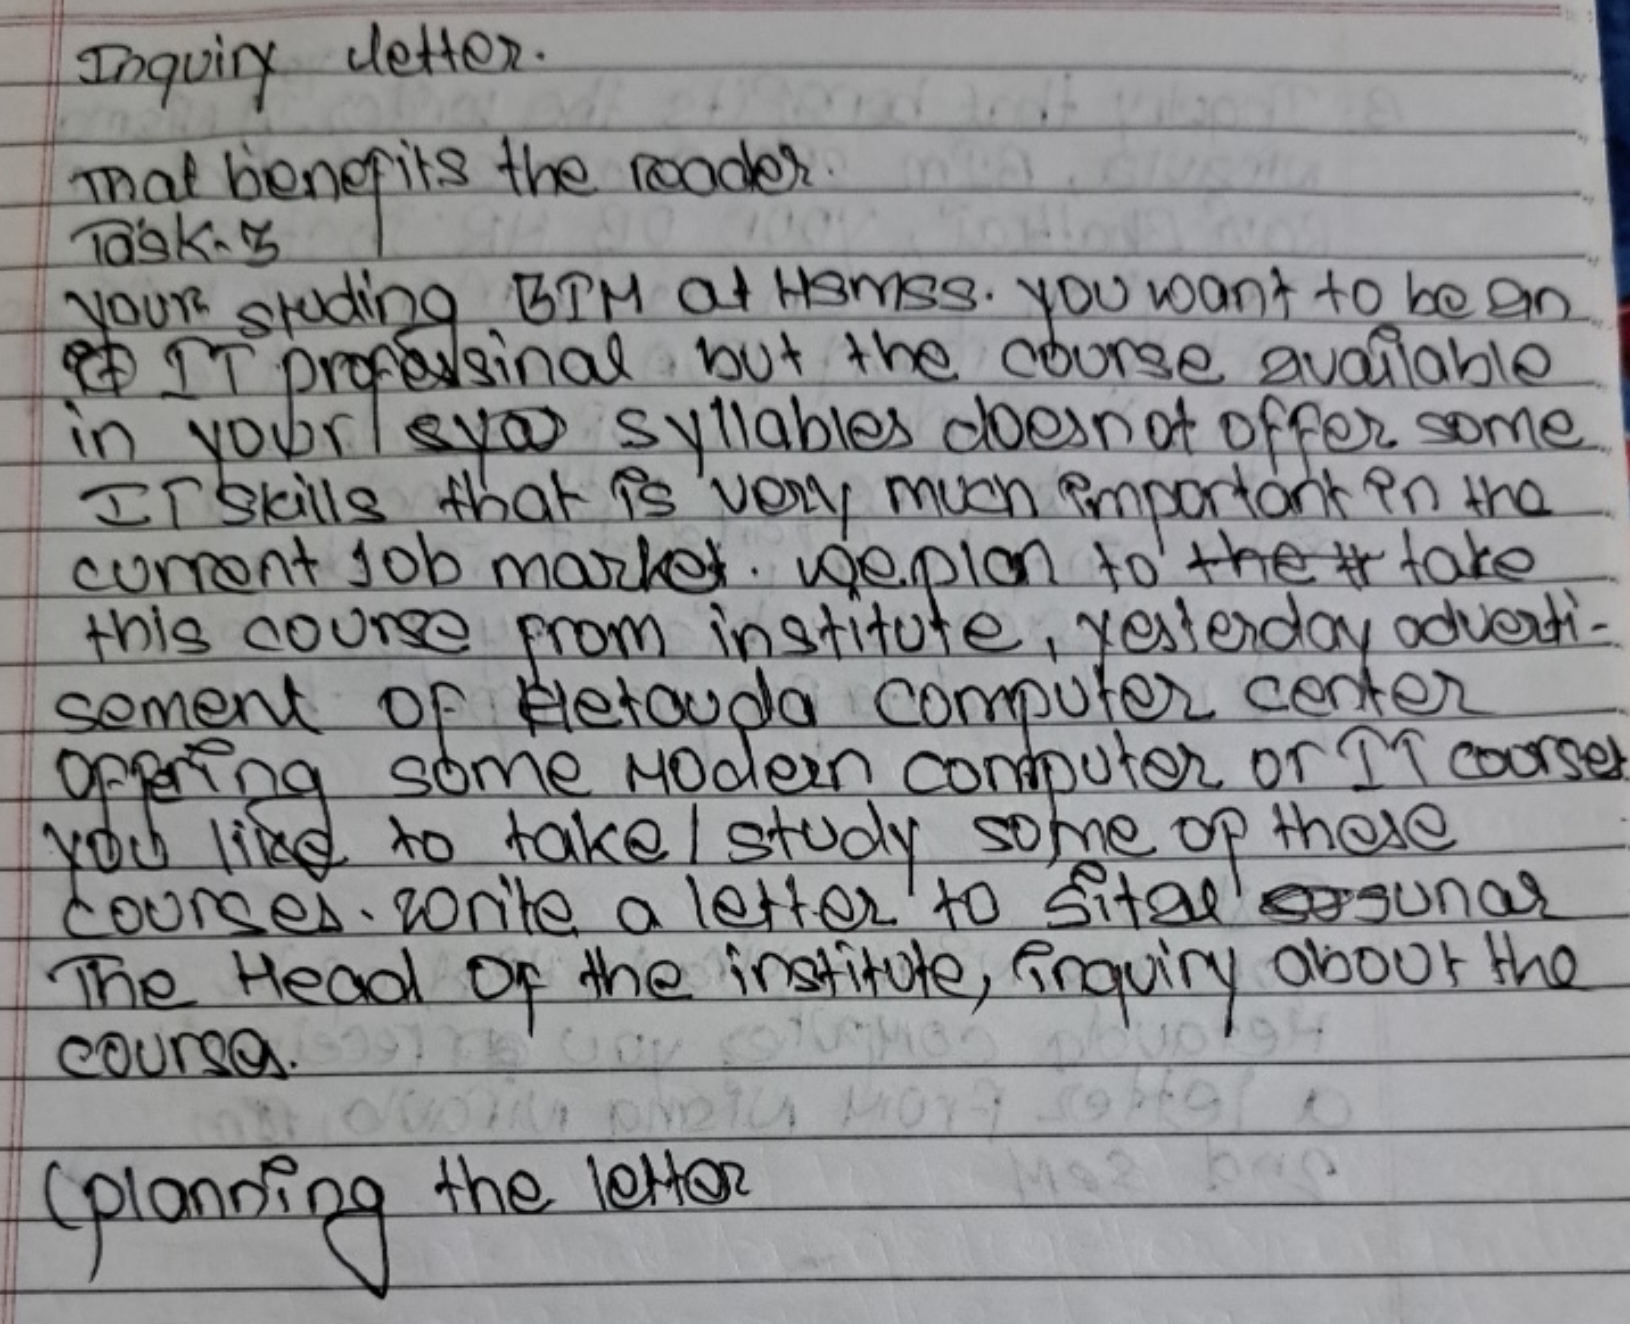 Inquiry letter.
That benefits the reader.
Task-3
your studing BIM at HSMSS. you want to be an
IT professinal but the course available
in your syllables doesnot offer some
IT skills that is very much important in the
current job market. we plan to the tt take
this course from institute, yesterday adverti-
sement of Hetauda computer center
offering some Modern computer or IT courses
you like to take / study some of these
courses. write a letter to Sital sunar
The Head of the institute, inquiry about the
course.
(planning the letter